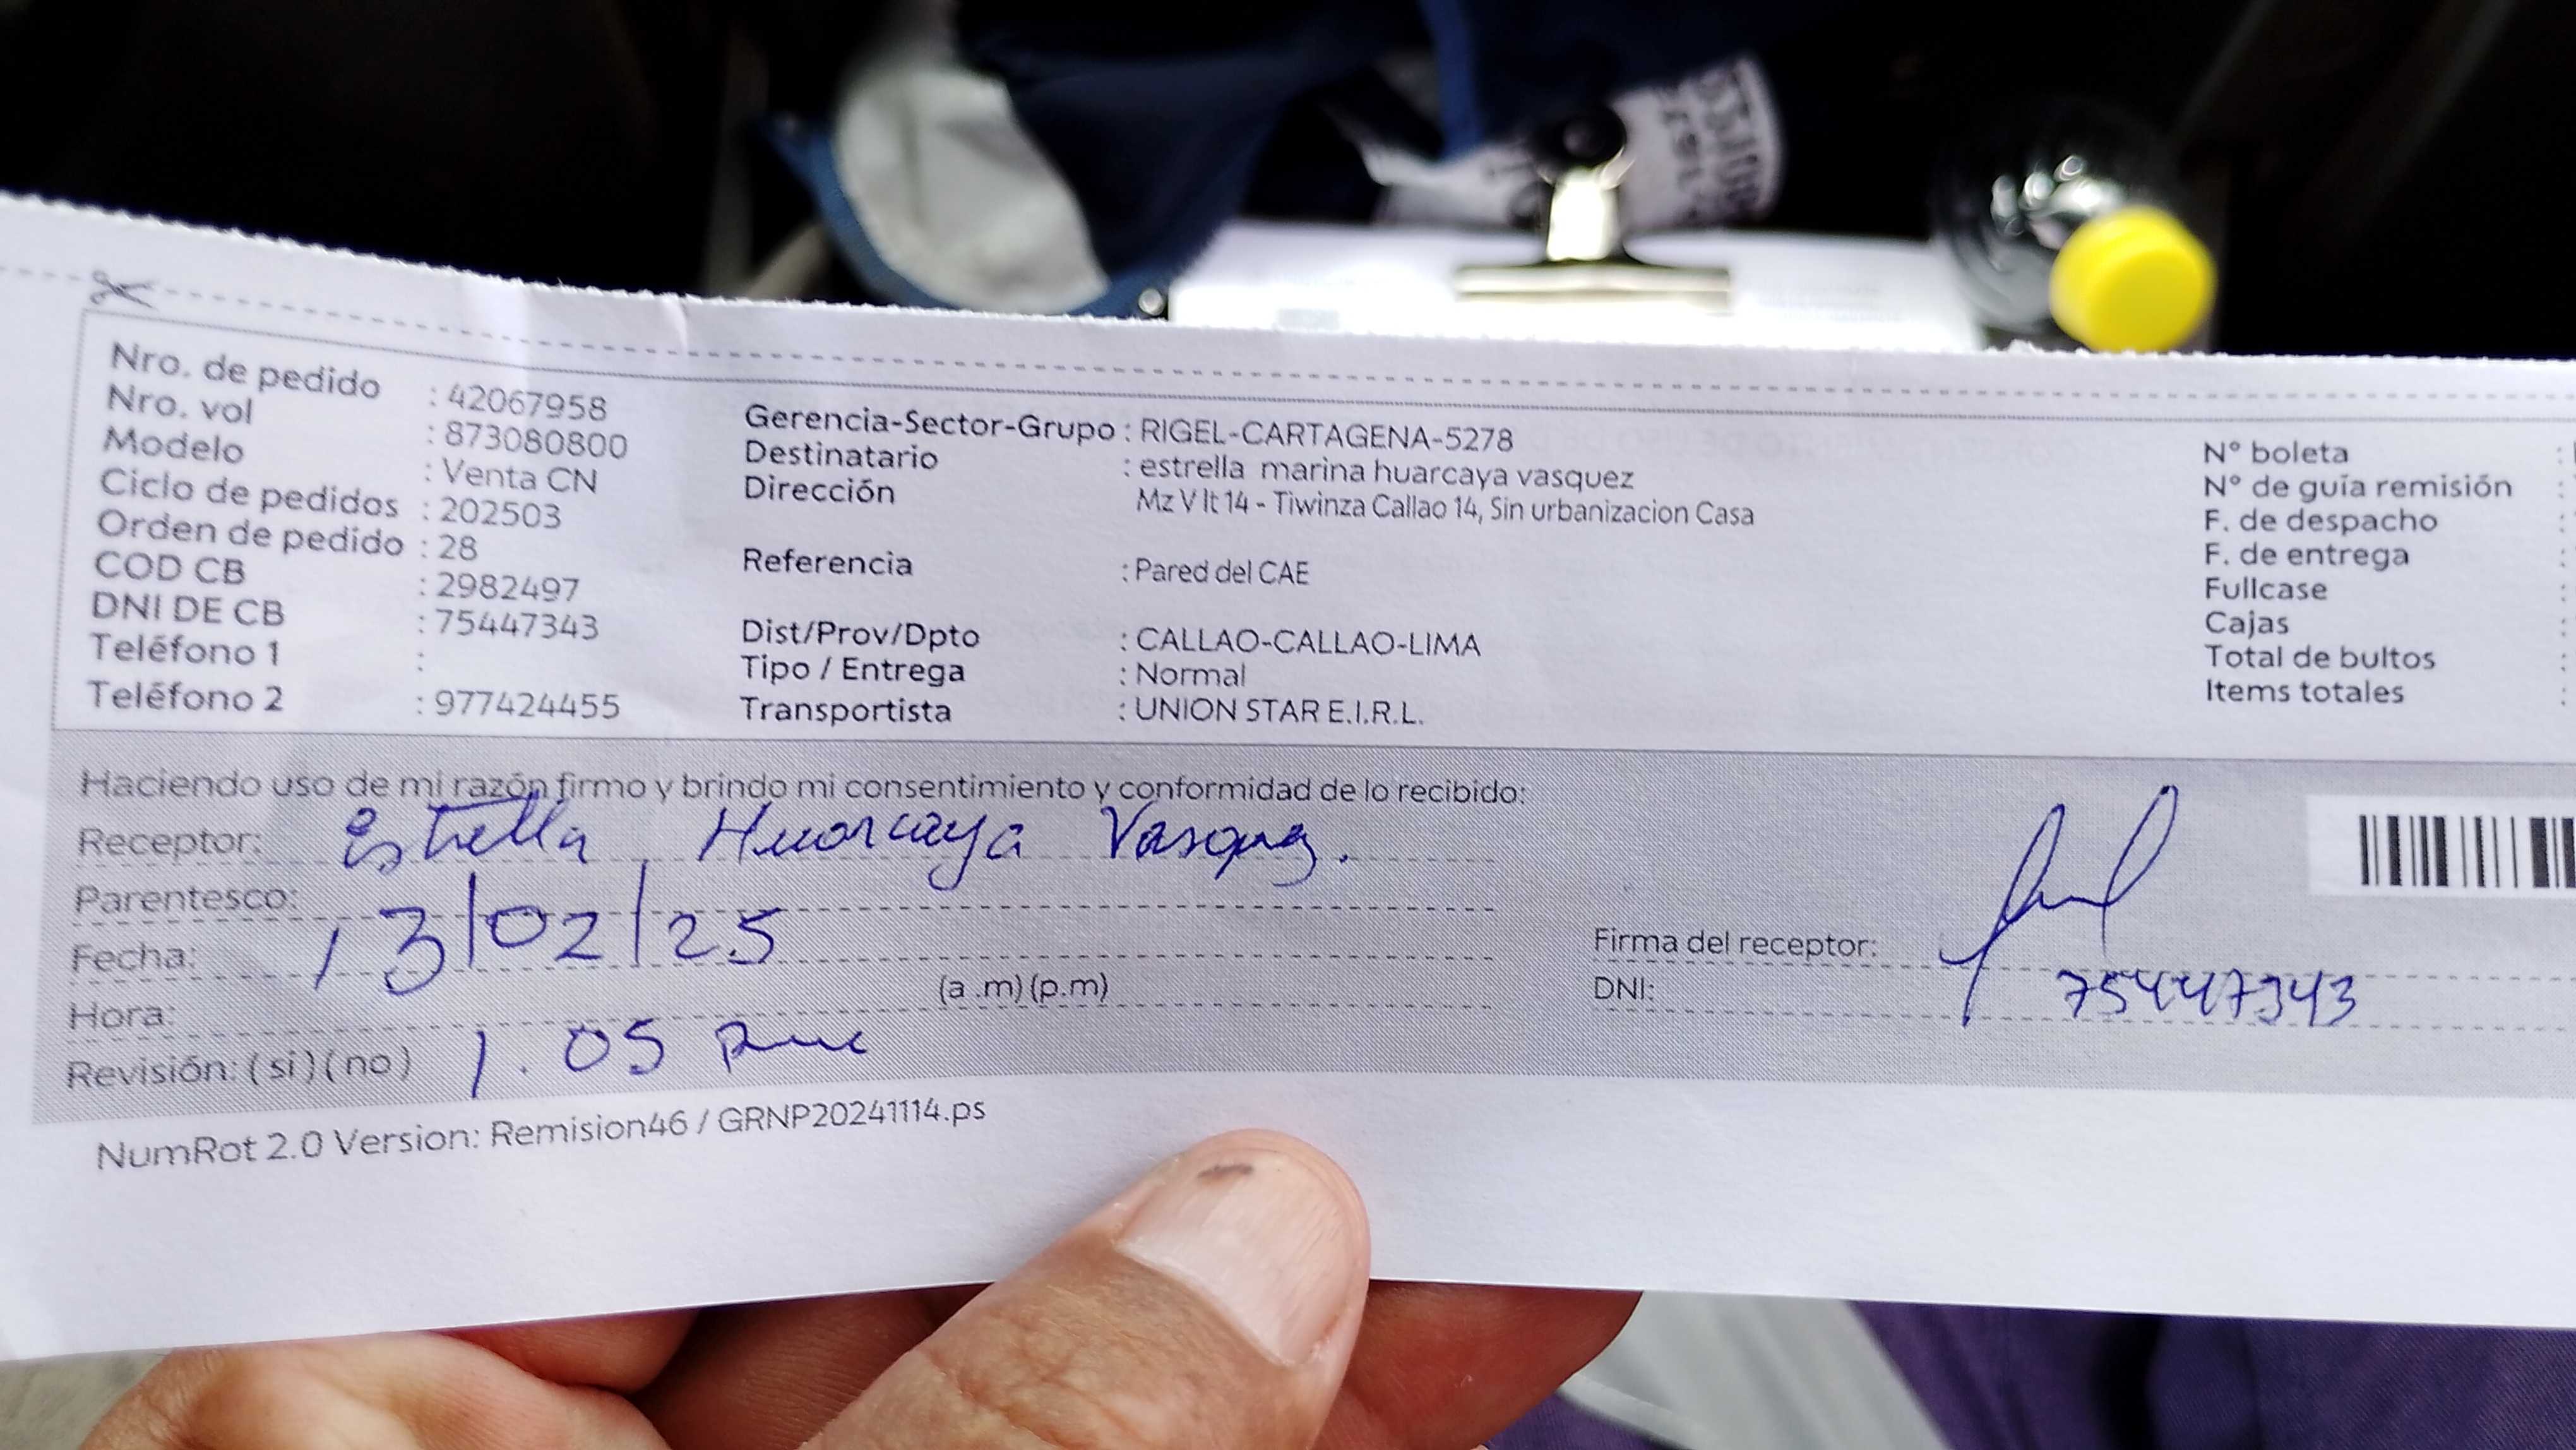 Nro. de pedido : 42067958
Nro. vol : 873080800
Modelo : Venta CN
Ciclo de pedidos : 202503
Orden de pedido : 28
COD CB : 2982497
DNI DE CB : 75447343
Teléfono 1 :
Teléfono 2 : 977424455
Gerencia-Sector-Grupo : RIGEL-CARTAGENA-5278
Destinatario : estrella marina huarcaya vasquez
Dirección Mz V lt 14 - Tiwinza Callao 14, Sin urbanizacion Casa
Referencia : Pared del CAE
Dist/Prov/Dpto : CALLAO-CALLAO-LIMA
Tipo / Entrega : Normal
Transportista : UNION STAR E.I.R.L.
N° boleta :
N° de guía remisión :
F. de despacho :
F. de entrega :
Fullcase :
Cajas :
Total de bultos :
Items totales :
Haciendo uso de mi razón firmo y brindo mi consentimiento y conformidad de lo recibido:
Receptor: Estrella Huarcaya Vasquez.
Parentesco:
Fecha: 13/02/25
Hora: (a .m) (p.m)
Revisión: ( si ) ( no ) 1.05 pm
Firma del receptor:
DNI: 75447343
NumRot 2.0 Version: Remision46 / GRNP20241114.ps